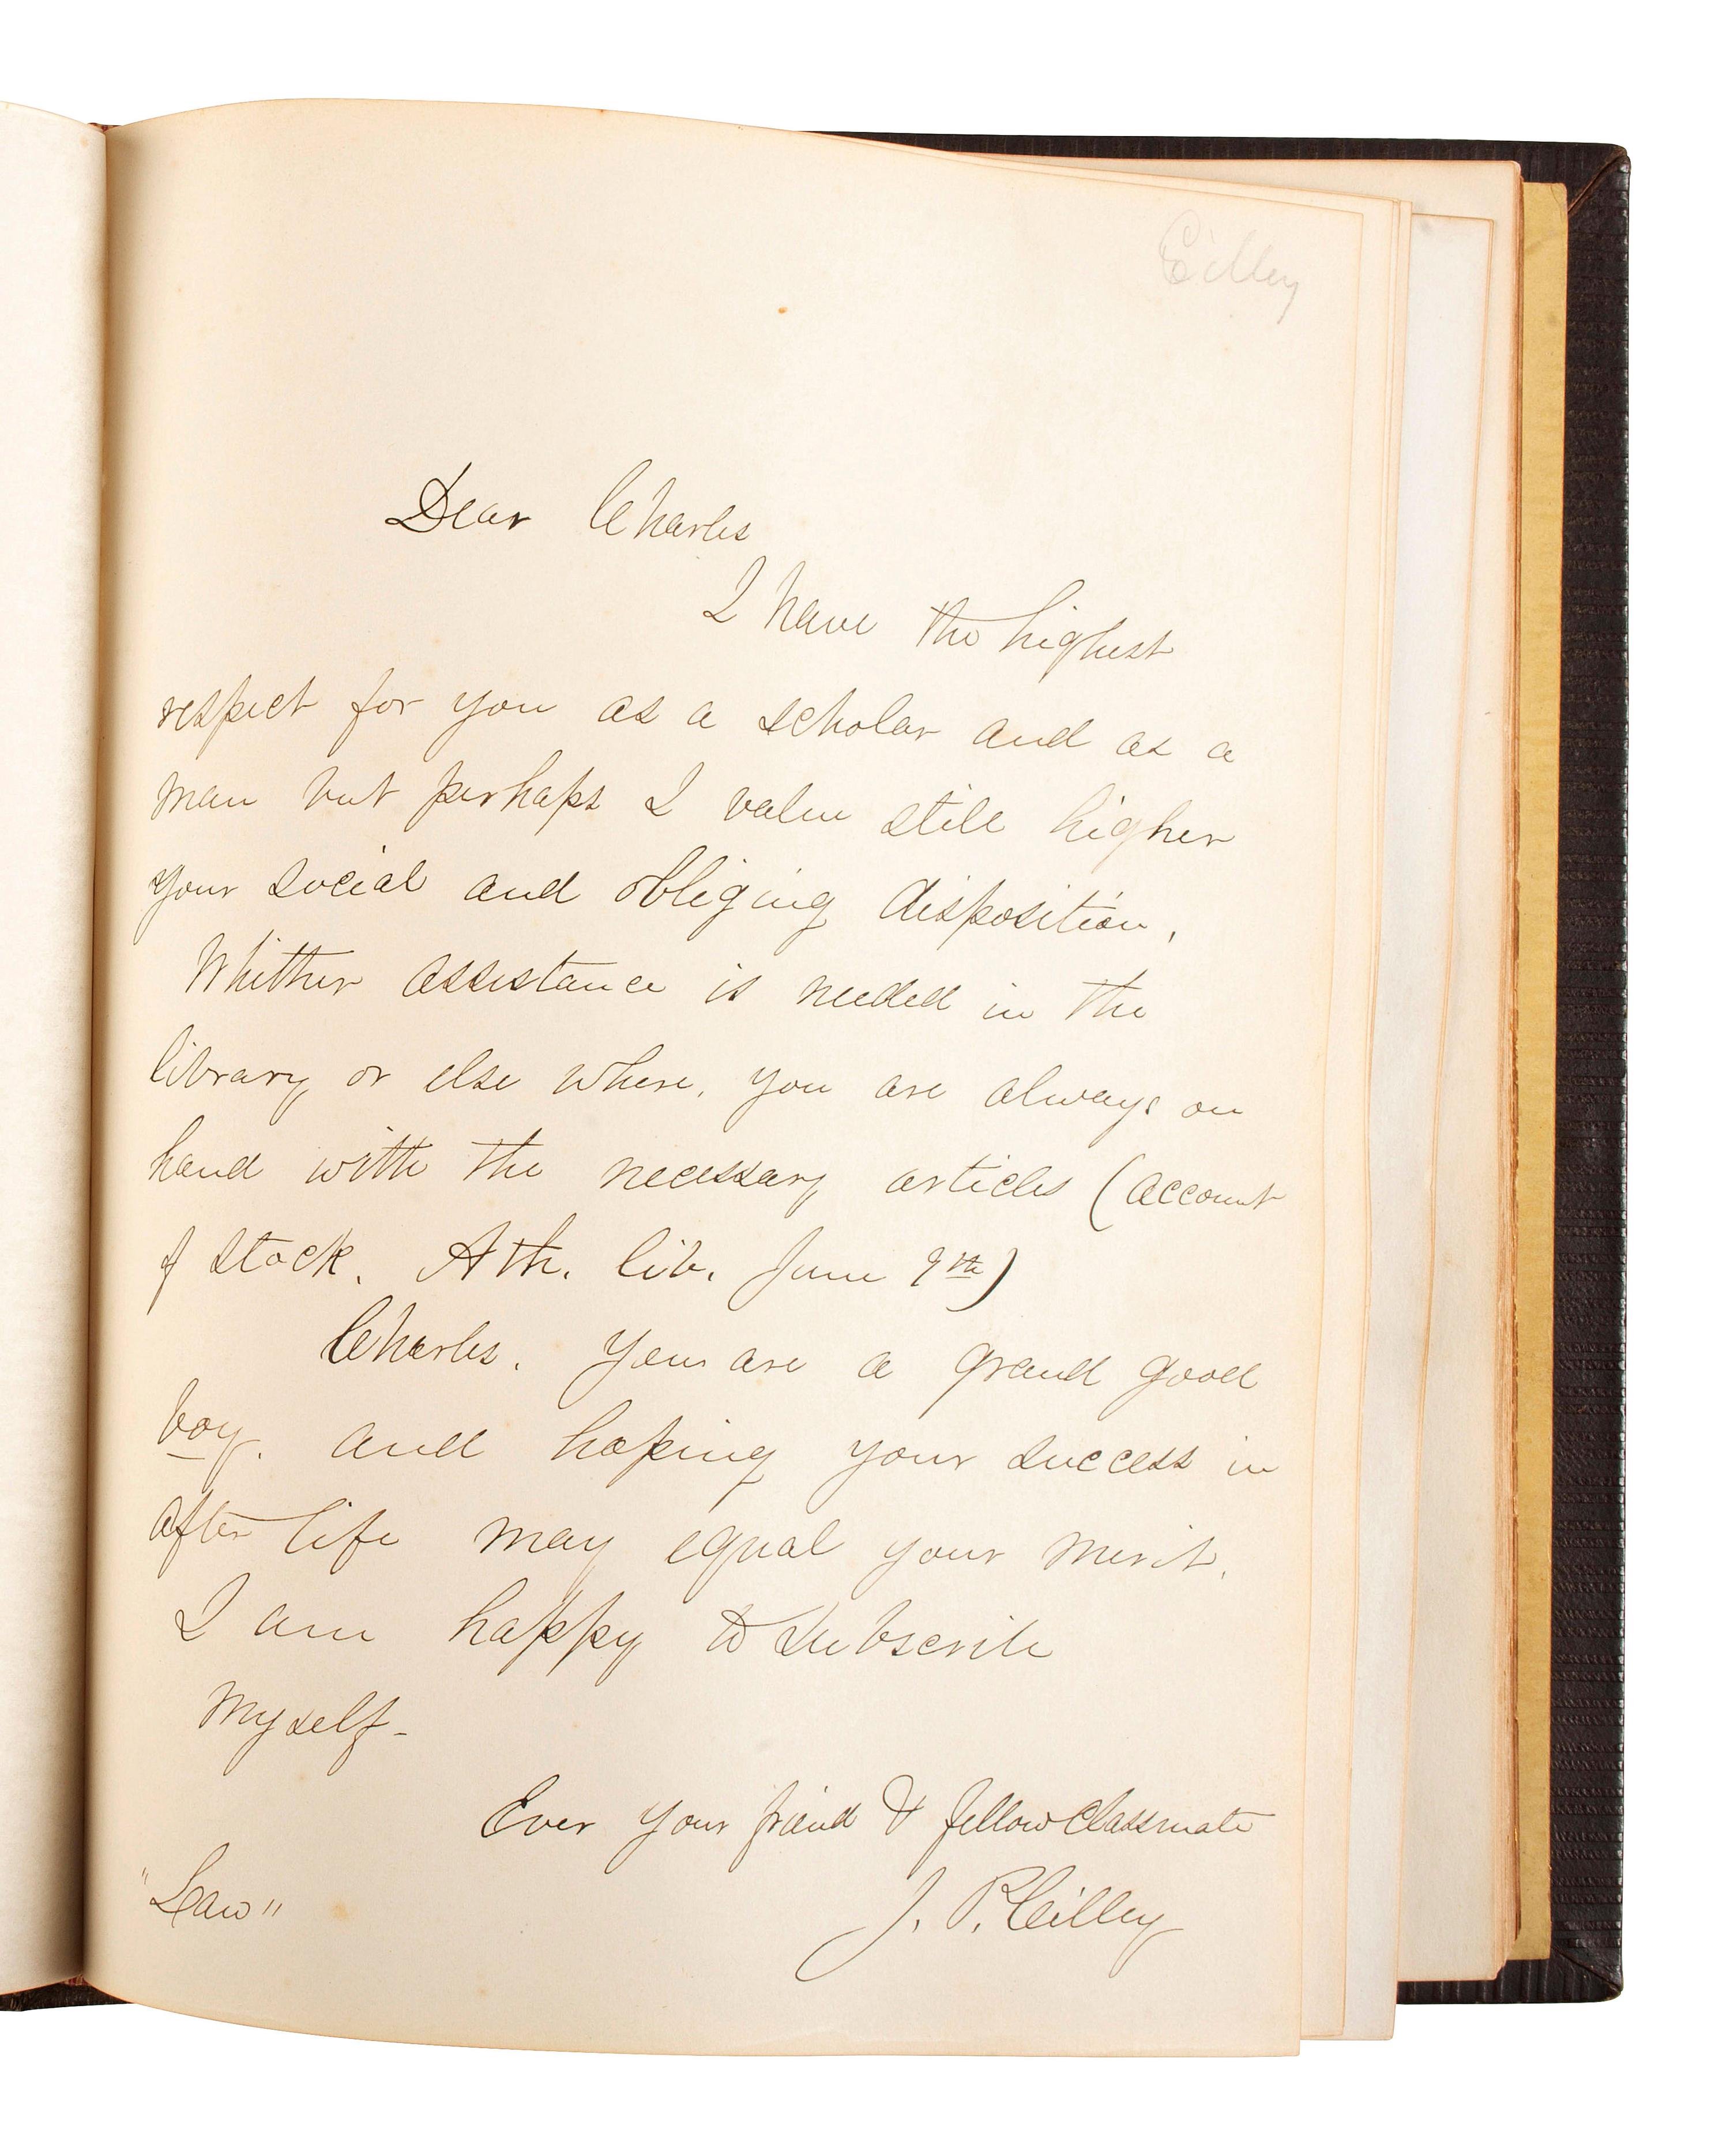 Cilley
Dear Charles
I have the highest
respect for you as a scholar and as a
man but perhaps I value still higher
your social and obliging disposition.
Whither assistance is needed in the
library or else where, you are always on
hand with the necessary articles (account
of stock. Ath. lib. June 9th)
Charles. You are a grand good
boy. and hoping your success in
after life may equal your merit.
I am happy to subscribe
myself-
Ever your friend & fellow classmate
"Law"
J. P. Cilley